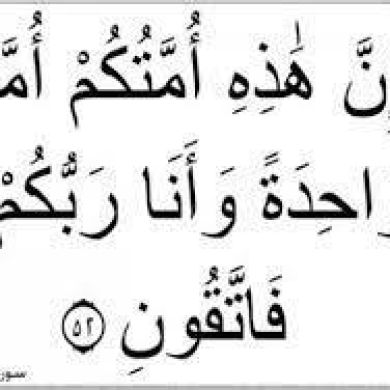 ِنَّ هَٰذِهِ أُمَّتُكُمْ أُمَّ
احِدَةً وَأَنَا رَبُّكُمْ
فَاتَّقُونِ ٥٢
سور